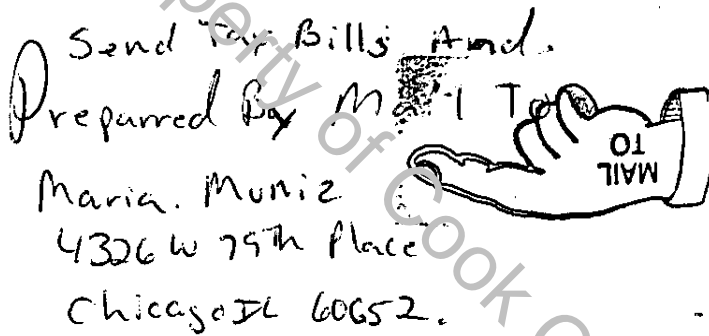 Send Tax Bills And.
Preparred By Mail To
MAIL TO
Maria. Muniz
4326 W 79th Place
Chicago IL 60652.
Property of Cook